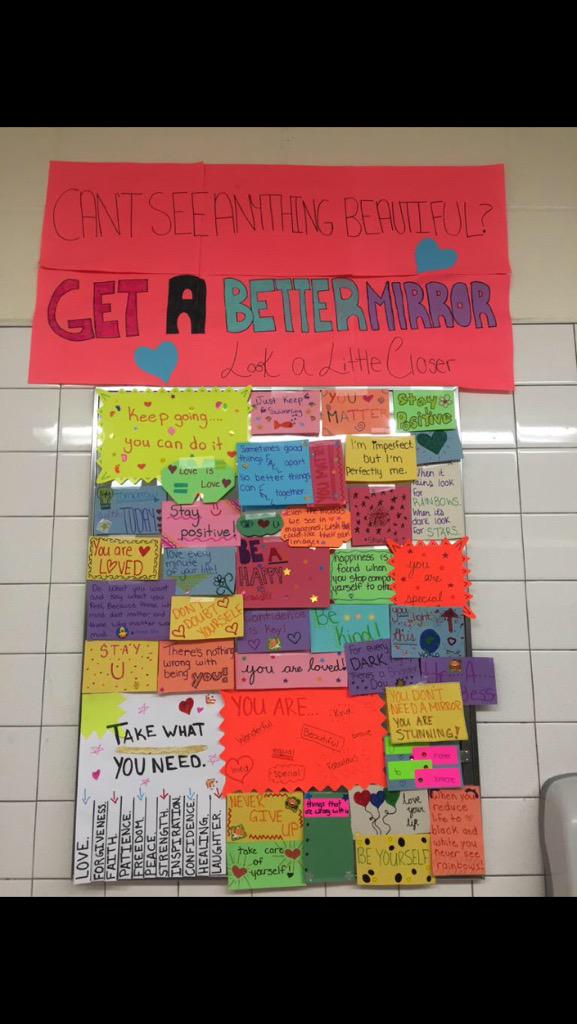 CANT SEE ANYTHING BEAUTIFUL?
GET A BETTER MIRROR
Look a Little Closer
Keep going....
you can do it
Just keep
Swimming
YOU
MATTER
Stay
Positive
Sometimes good
things FALL apart
so better things
can FALL
together.
YOU MATTER
I'm imperfect
but I'm
perfectly me.
Love is
Love
When it
rains look
for
RAINBOWS.
when it's
dark look
for STARS.
TODAY
Stay
positive!
Even the models
we see in
magazines, wish they
could look like their own
images
You are
LOVED
love every
minute
of your life!
BE A
HAPPY
happiness is
found when
you stop
yourself to
you
are
special
Do what you want
and say what you
feel, Because those who
mind don't matter and
those who matter
mind
DON'T
DOUBT
YOURSELF
Confidence
is Key!
Be
Kind!
this
STAY
There's nothing
wrong with
being you!
you are loved!
For every
DARK
Day
YOU DON'T
NEED A MIRROR
YOU ARE
STUNNING!
TAKE WHAT
YOU NEED.
LOVE.
FORGIVENESS.
FAITH.
PATIENCE.
FREEDOM.
PEACE.
STRENGTH.
INSPIRATION.
CONFIDENCE.
HEALING.
LAUGHTER.
YOU ARE...
Kind
Wonderful
Beautiful
brave
equal
loved
special
Fabulous
NEVER
GIVE
UP
things that
are wrong with
love
your
life
When you
reduce
life to
black and
white, you
never see
rainbows!
take care
of
yourself
BE YOURSELF